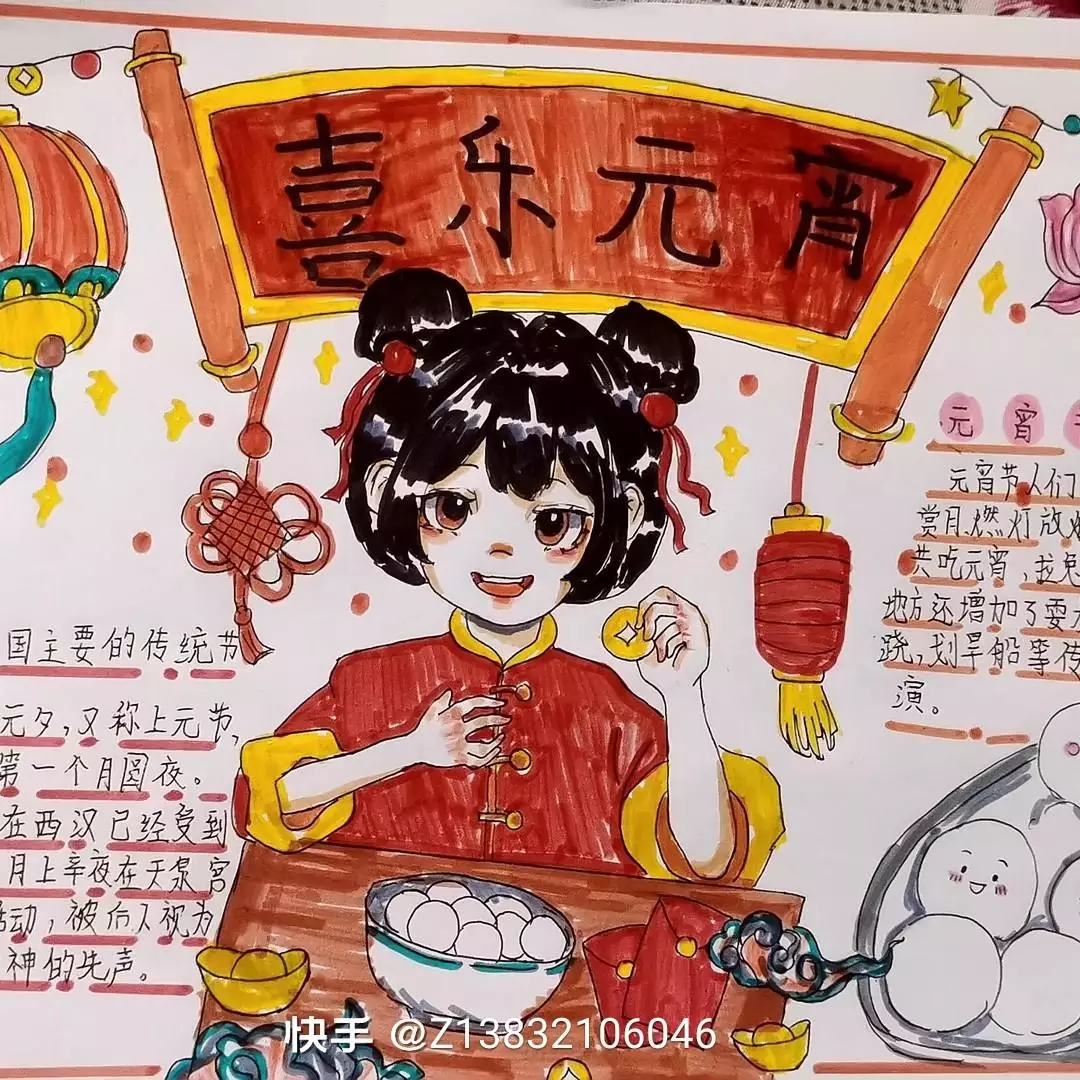 喜乐元宵
元宵
元宵节人们
赏月燃灯放
共吃元宵,
地方还增加了耍
跷,划旱船等传
演。
国主要的传统节
元夕,又称上元节,
第一个月圆夜。
在西汉已经受到
月上辛夜在天泉宫
活动,被后人视为
神的先声。
快手 @Z13832106046